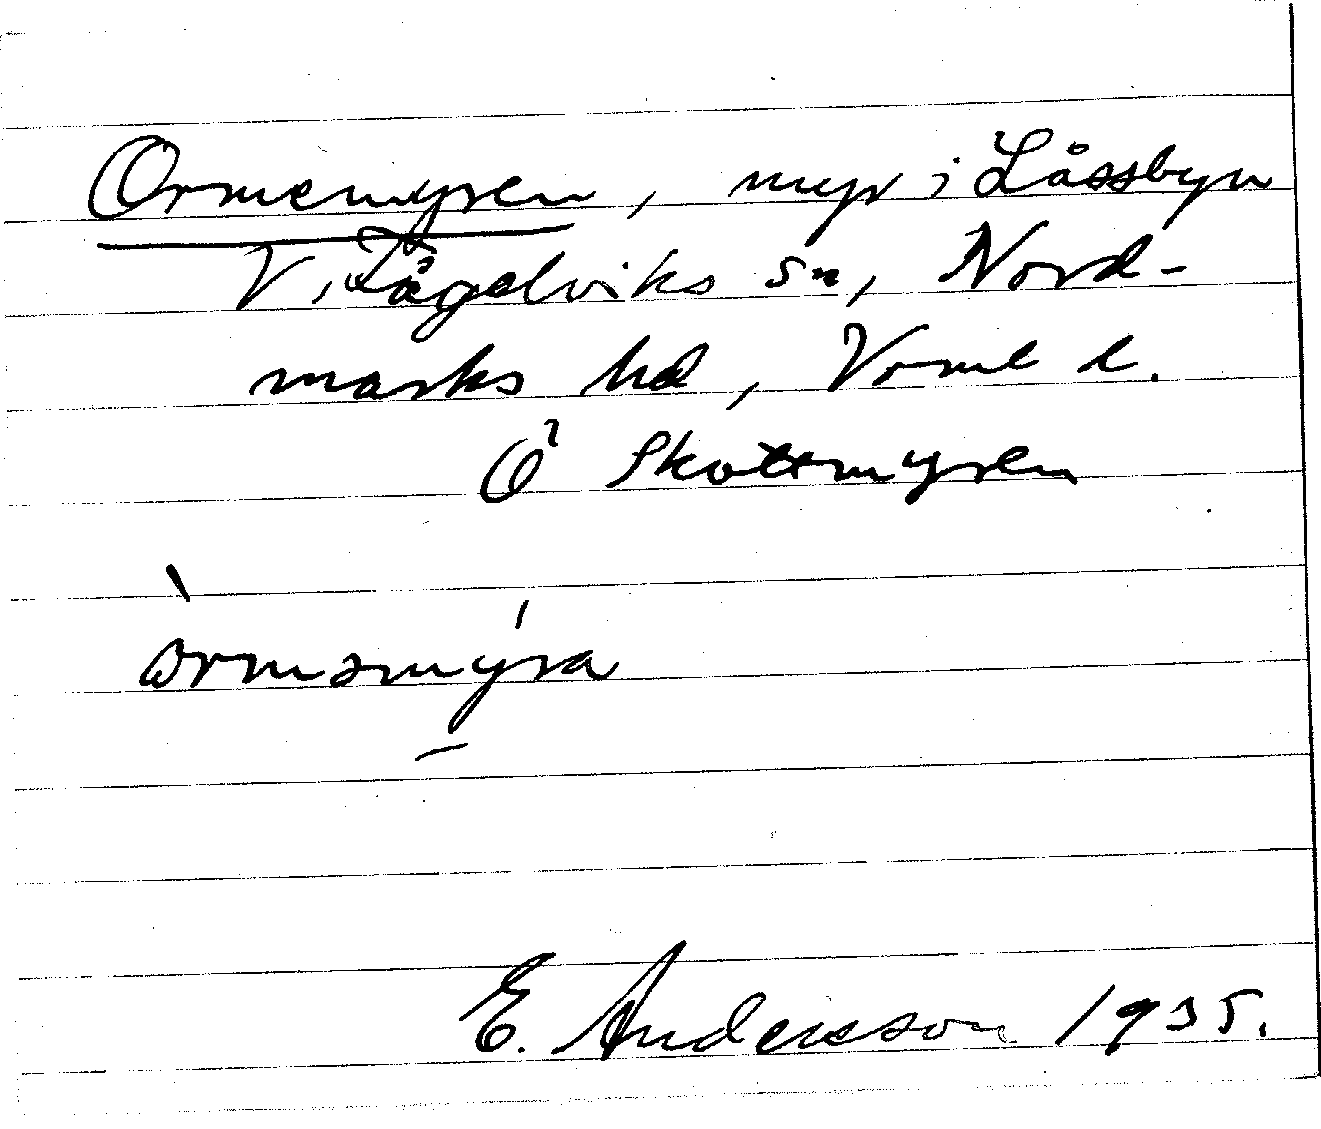 Ormemyren, myr i Låssbyn
V. Fågelviks sn, Nord-
marks hd, Vrml d.
Ö Skottmyren
òrməmýra
E. Andersson 1935.